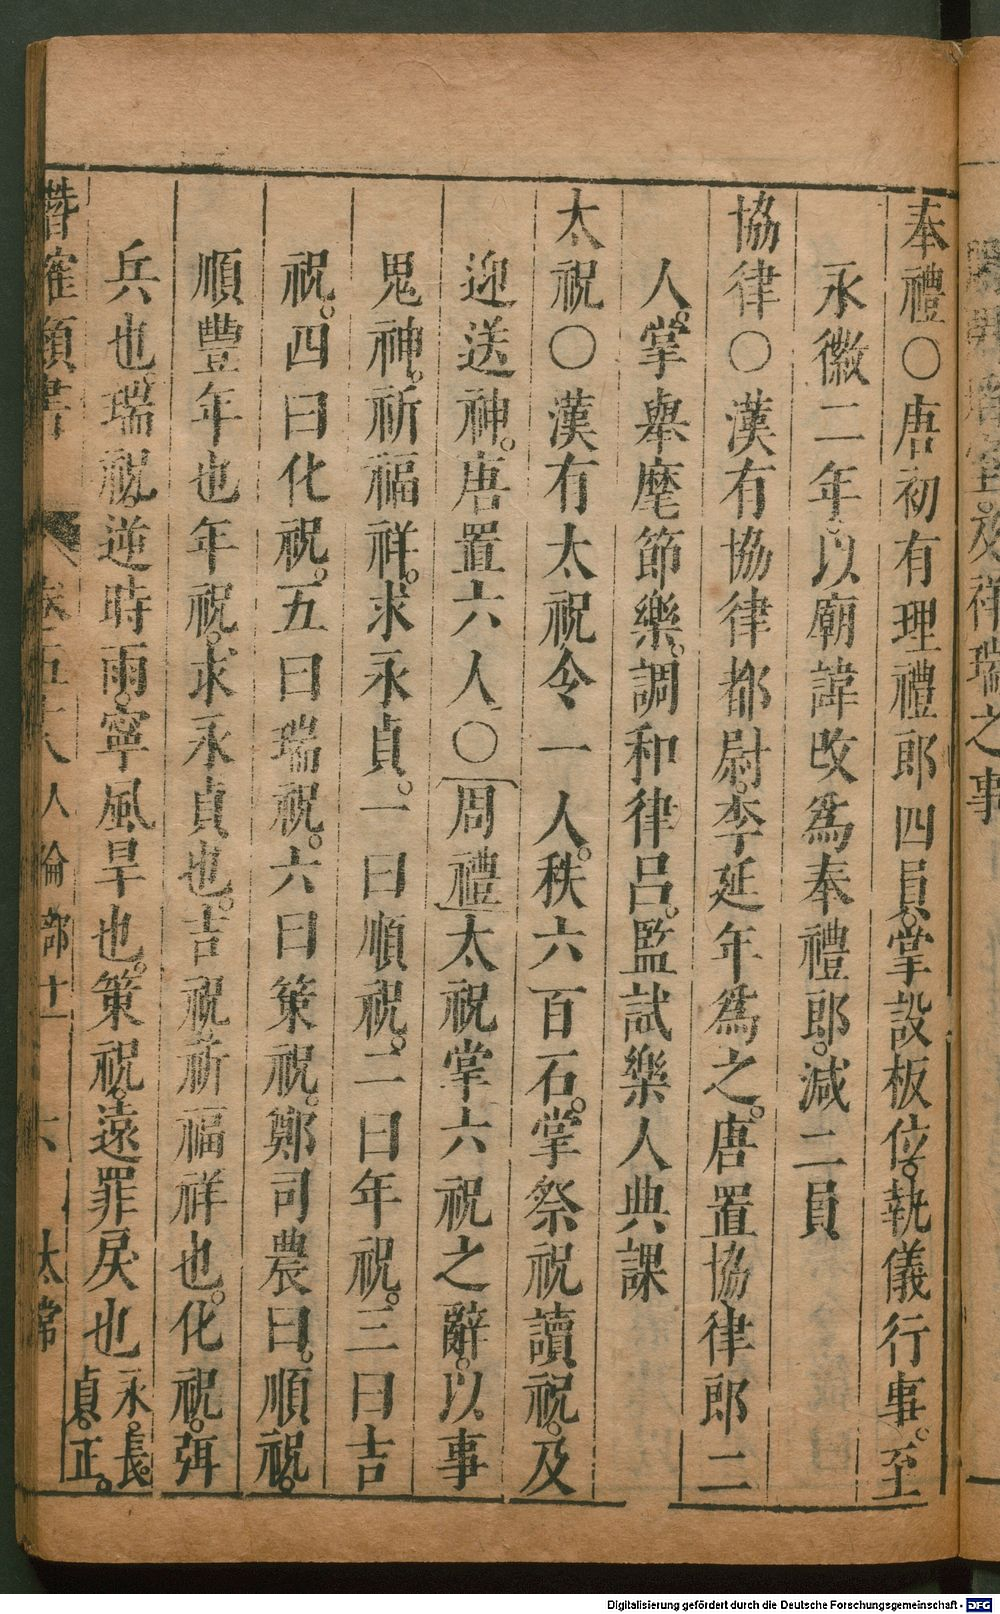 奉禮○唐初有理禮郎四員。掌設板位。執儀行事。至
永徽二年。以廟諱改爲奉禮郎。減二員
協律○漢有協律都尉。李延年爲之。唐置協律郎二
人。掌舉麾節樂。調和律呂。監試樂人典課
太祝○漢有太祝令一人。秩六百石。掌祭祝讀祝。及
迎送神。唐置六人○周禮太祝掌六祝之辭。以事
鬼神。祈福祥。求永貞。一曰順祝。二曰年祝。三曰吉
祝。四曰化祝。五曰瑞祝。六曰策祝。鄭司農曰。順祝。
順豐年也年祝。求永貞也。吉祝祈福祥也。化祝。弭
兵也瑞祝。逆時雨。寧風旱也。策祝。遠罪戾也永。長。貞。正。
潛確類書 卷五十八人倫部十一 六 太常
祥瑞之事
Digitalisierung gefördert durch die Deutsche Forschungsgemeinschaft - DFG